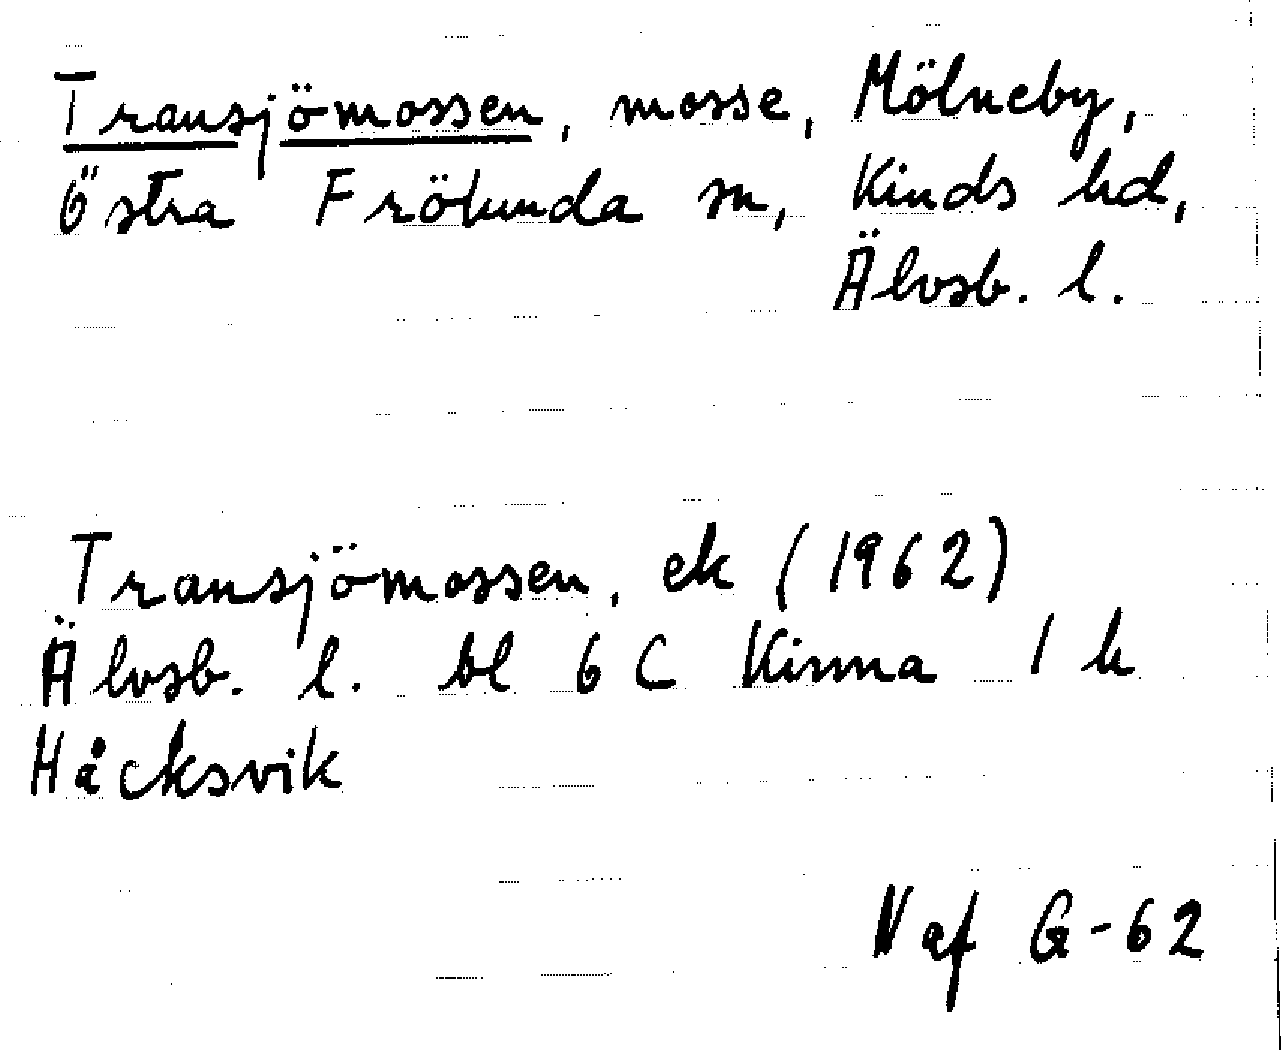 Transjömossen, mosse, Mölneby,
Östra Frölunda sn, Kinds hd,
Älvsb. l.
Transjömossen, ek (1962)
Älvsb. l. bl 6 C Kinna 1 h
Håcksvik
Naf G-62